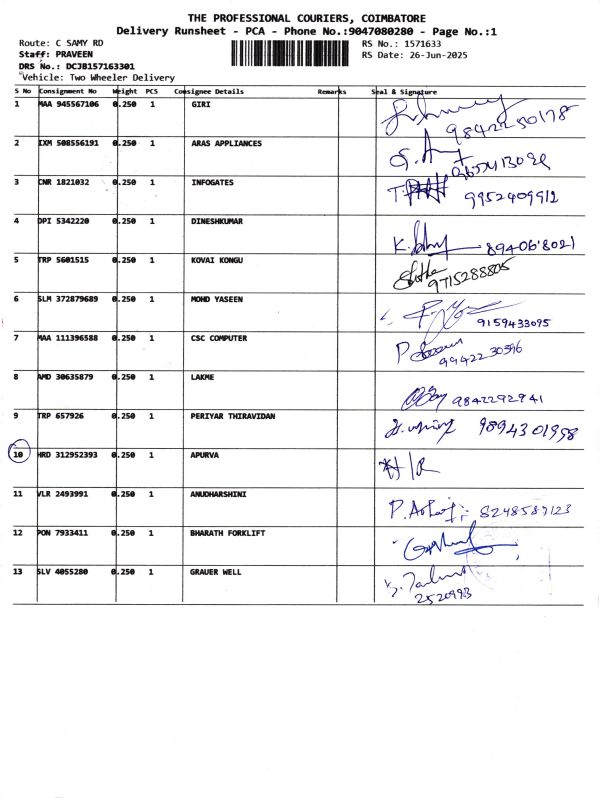 THE PROFESSIONAL COURIERS, COIMBATORE
Delivery Runsheet - PCA - Phone No.:9047080280 - Page No.:1
Route: C SAMY RD RS No.: 1571633
Staff: PRAVEEN RS Date: 26-Jun-2025
DRS No.: DCJB157163301
Vehicle: Two Wheeler Delivery
S No Consignment No Weight PCS Consignee Details Remarks Seal & Signature
1 MAA 945567106 0.250 1 GIRI
9842250178
2 IXM 508556191 0.250 1 ARAS APPLIANCES
3 CNR 1821032 0.250 1 INFOGATES 9952409912
4 DPI 5342220 0.250 1 DINESHKUMAR
894068021
5 TRP 5601515 0.250 1 KOVAI KONGU
9715288805
6 SLM 372879689 0.250 1 MOHD YASEEN
9159433095
7 MAA 111396588 0.250 1 CSC COMPUTER
9942230396
8 AMD 30635879 0.250 1 LAKME
9842292941
9 TRP 657926 0.250 1 PERIYAR THIRAVIDAN 9894301998
10 HRD 312952393 0.250 1 APURVA
11 VLR 2493991 0.250 1 ANUDHARSHINI
8248587123
12 PON 7933411 0.250 1 BHARATH FORKLIFT
13 SLV 4055280 0.250 1 GRAUER WELL
2520993